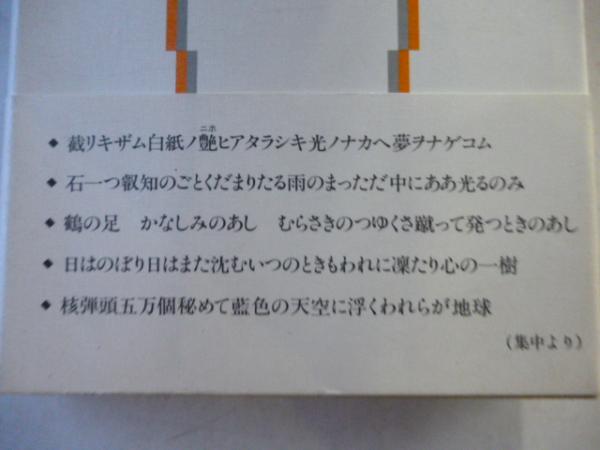 ◆ 截リキザム白紙ノ艶ヒアタラシキ光ノナカヘ夢ヲナゲコム
ニホ
◆ 石一つ叡知のごとくだまりたる雨のまっただ中にああ光るのみ
◆ 鶴の足　かなしみのあし　むらさきのつゆくさ蹴って発つときのあし
◆ 日はのぼり日はまた沈むいつのときもわれに凜たり心の一樹
◆ 核弾頭五万個秘めて藍色の天空に浮くわれらが地球
（集中より）